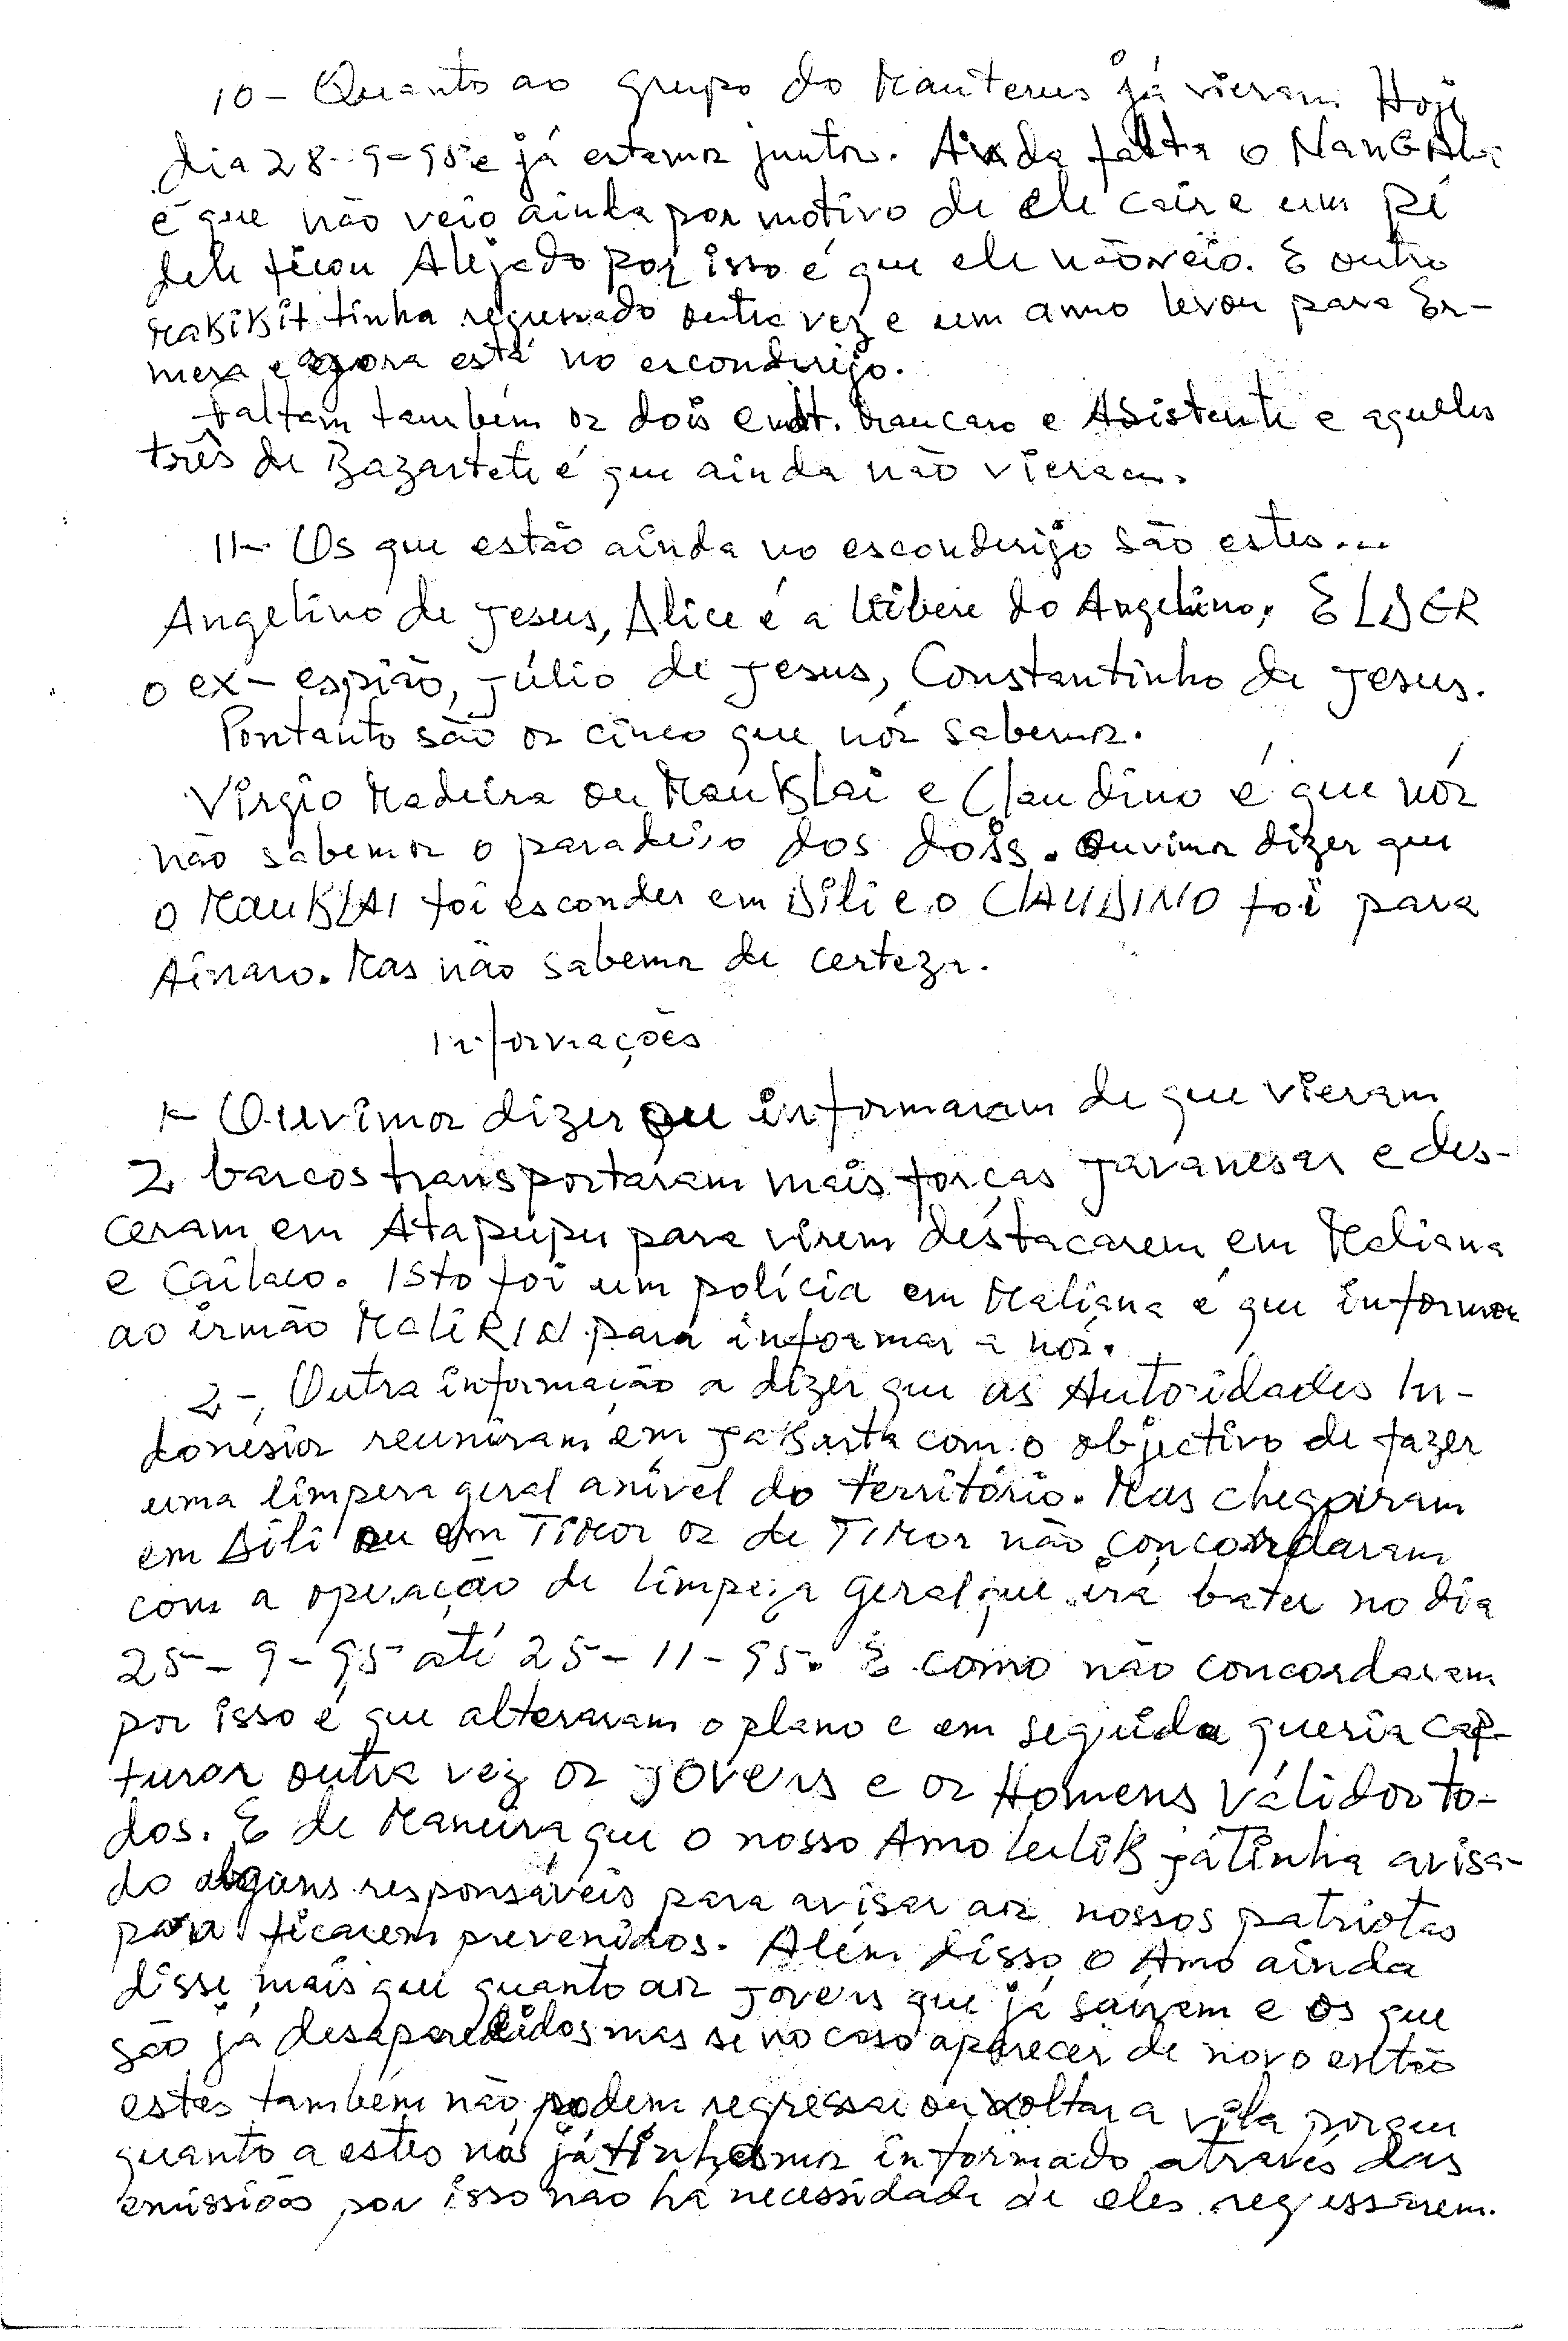 10 - Quanto ao grupo do Mauterus já vieram Hoje
dia 28-9-95 e já estamos juntos. Ainda falta o
é que não veio ainda por motivo de ele cair e um pé
dele ficou Alejado por isso é que ele não veio. E outro
MaKiKit tinha regressado outra vez e um amo levou para Er-
mera e agora está no esconderijo.
Faltam também os dois Maucaro e Asistente e aqueles
três de Bazartete é que ainda não vieram.
11- Os que estão ainda no esconderijo são estes...
Angelino de Jesus, Alice é a do Angelino, ELDER
o ex-espião, Júlio de Jesus, Constantinho de Jesus.
Portanto são os cinco que nós sabemos.
Virgio Madeira ou MauKLai e Claudino é que nós
não sabemos o paradeiro dos dois. Ouvimos dizer que
o MauKLAI foi esconder em Dili e o CLAUDINO foi para
Ainaro. Mas não sabemos de certeza.
Informações
1- Ouvimos dizer ou informaram de que vieram
2 barcos transportaram mais forças Javanesas e des-
ceram em Atapupu para virem destacarem em Maliana
e Cailaco. Isto foi um polícia em Maliana é que informou
ao irmão para informar a nós.
2-, Outra informação a dizer que as Autoridades In-
donésios reuniram em JaKarta com o objectivo de fazer
uma limpeza geral a nível do território. Mas chegaram
em Dili ou em TiMor os de TiMor não concordaram
com a operação de limpeza geral que irá bater no dia
25-9-95 até 25-11-95. E como não concordaram
por isso é que alteraram o plano e em seguida queria cap-
turar outra vez os JOVENS e os Homens Válidos to-
dos. E de Maneira que o nosso Amo LeliK já Tinha avisa-
do alguns responsáveis para avisar aos nossos patriotas
para ficarem prevenidos. Além disso o Amo ainda
disse mais que quanto aos Jovens que já saíram e os que
são já desaparecidos mas se no caso aparecer de novo então
estes também não podem regressar ou voltar a vila porque
quanto a estes nós já tínhamos informado através das
emissões por isso não há necessidade de eles regressarem.